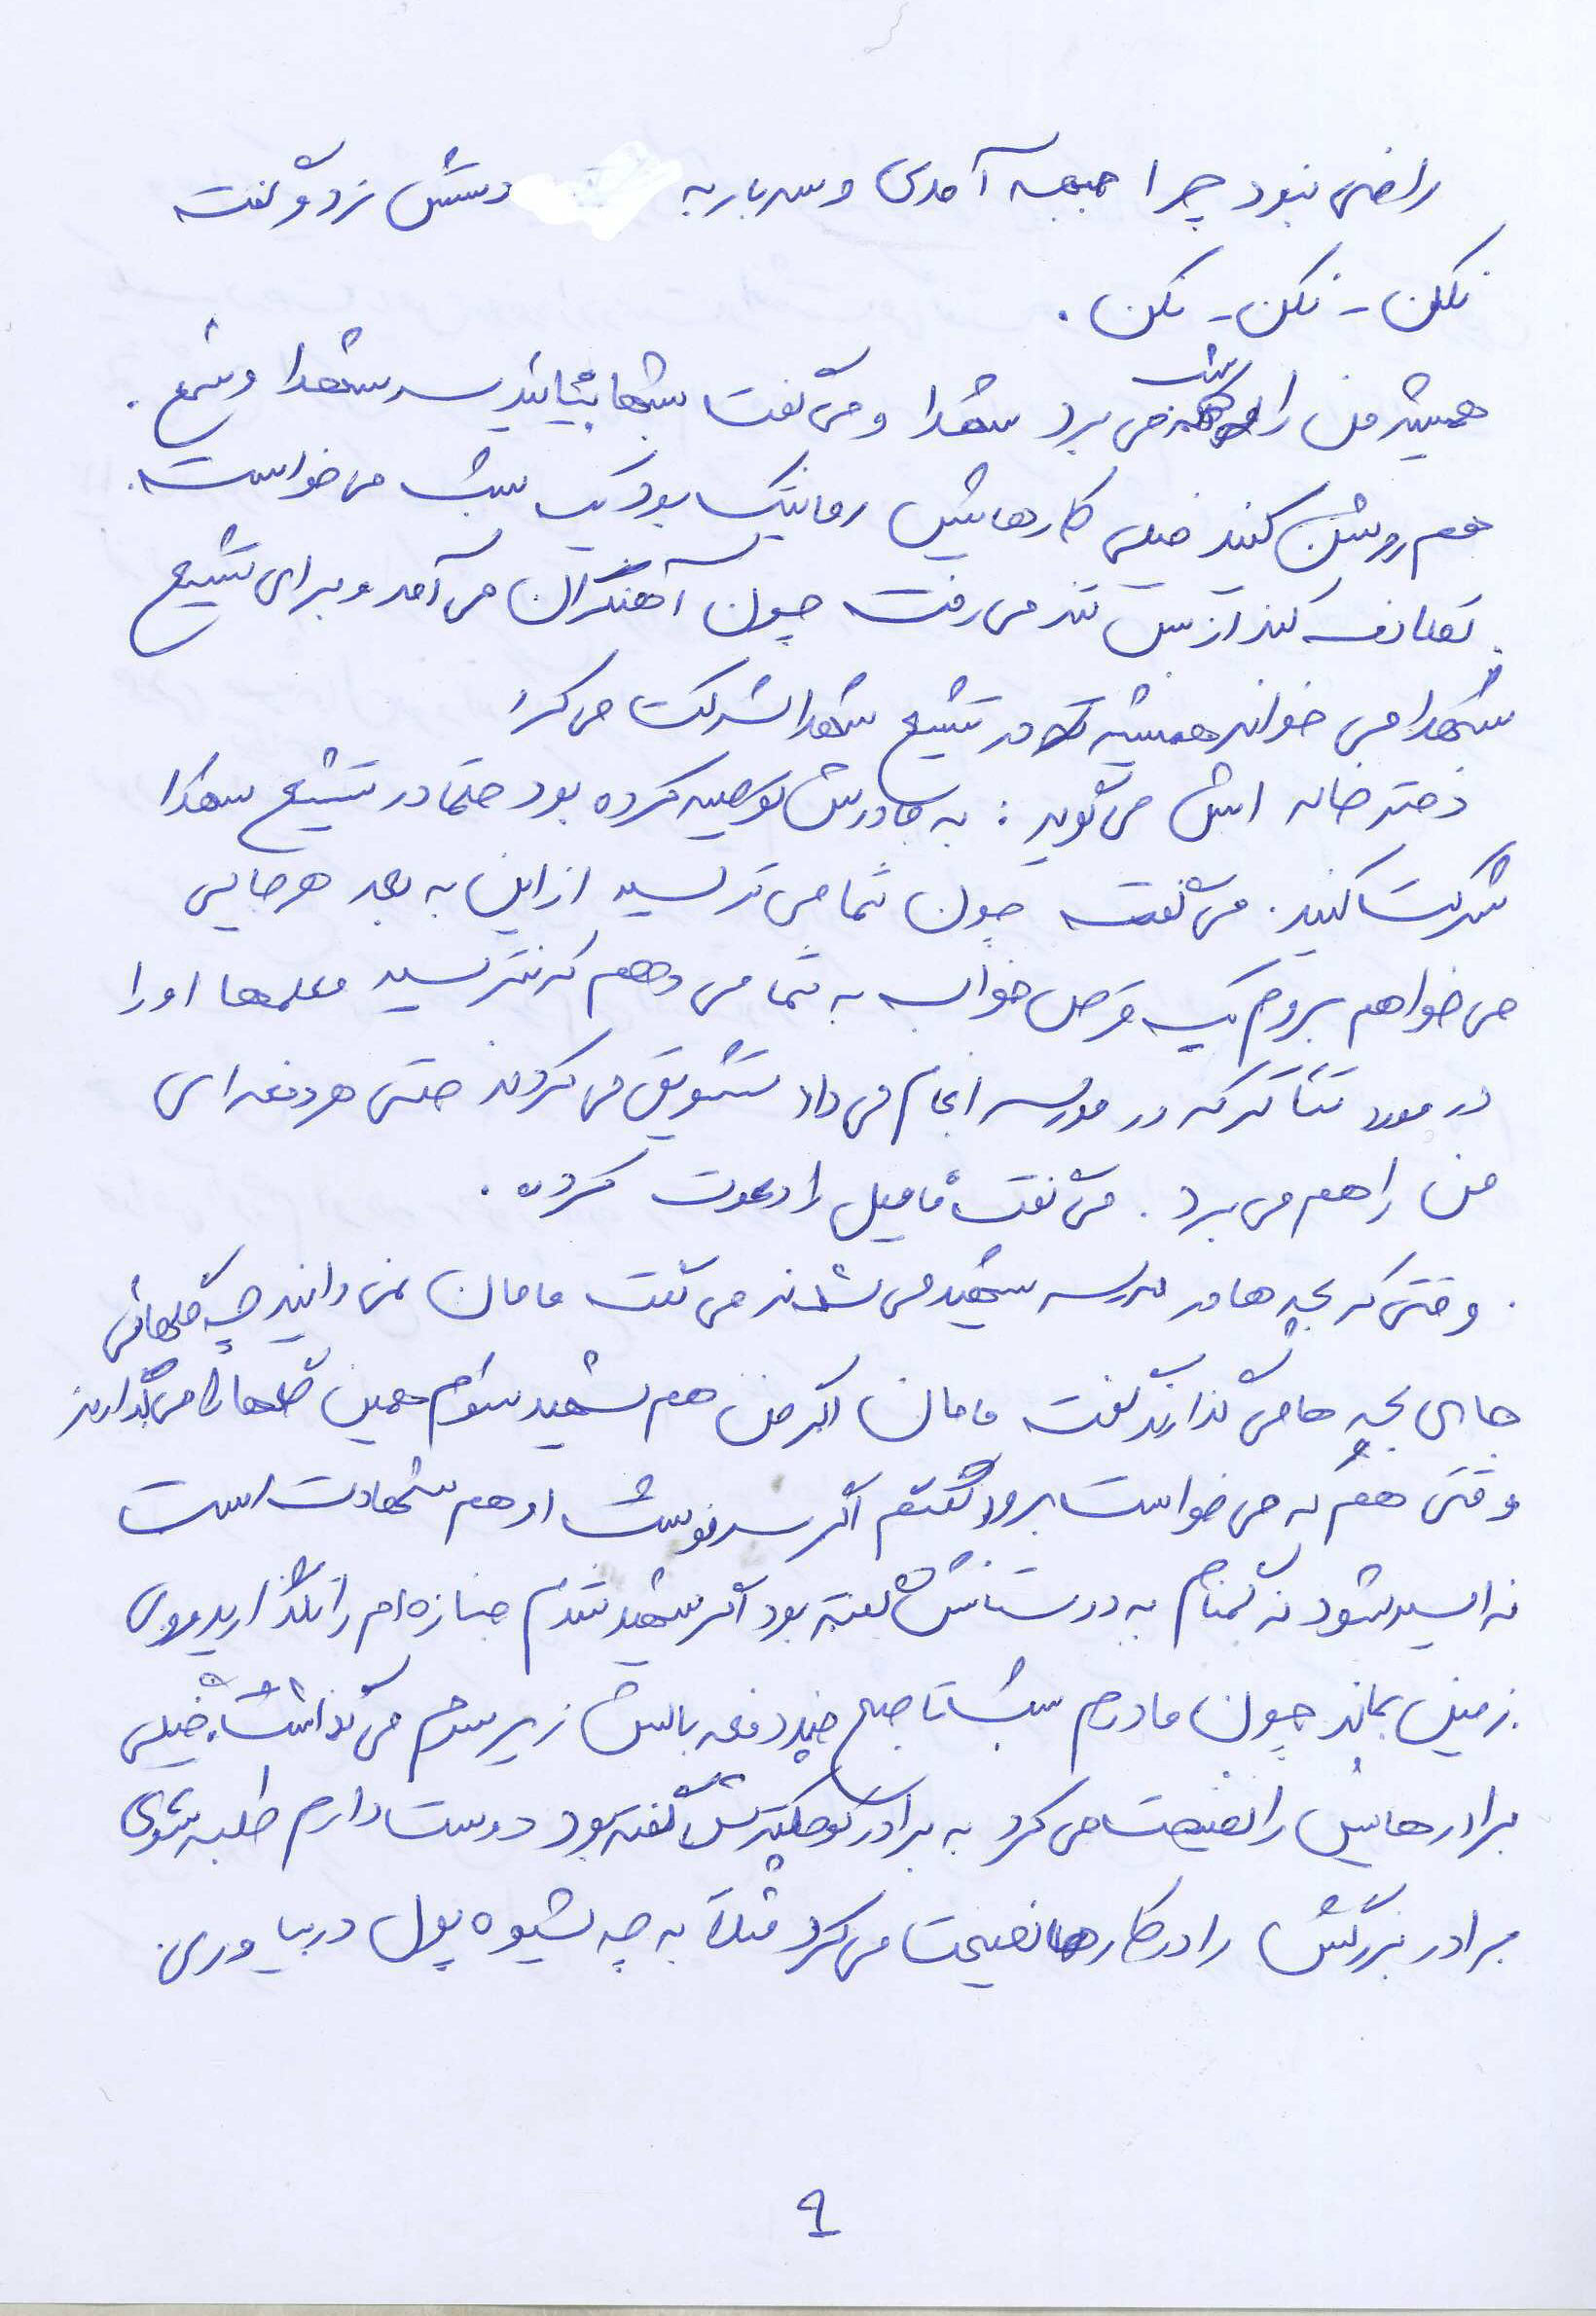 راضی نبود چرا جبهه آمدی و سه بار به دستش زد و گفت
نکن - نکن - نکن .
همیشه من را شب می برد شهدا و می گفت شبها بیایید سر شهدا و شمع .
هم روشن کنید خیلی کارهایش رمانتیک بود یک شب می خواست
تصادف کند از بس تند می رفت چون آهنگران می آمد و برای تشییع
شهدا می خواند همیشه در تشییع شهدا شرکت می کرد
دختر خاله اش می گوید : به مادرش توصیه کرده بود حتما در تشییع شهدا
شرکت کنید . می گفت چون شما می ترسید از این به بعد هر جایی
می خواهم بروم یک قرص خواب به شما می دهم که نترسید معلمها او را
در مورد تئاتر که در مدرسه انجام می داد تشویق می کردند حتی هر دفعه ای
من را هم می برد . می گفت فامیل را دعوت کرده .
. وقتی که بچه ها در مدرسه شهید می شدند می گفت مامان نمی دانید چه گلهائی
جای بچه ها می گذارند گفت مامان اگر من هم شهید شوم همین گلها را می گذارند
وقتی هم که می خواست برود گفتم اگر سرنوشت او هم شهادت است
نه اسیر شود نه گمنام به دوستانش گفته بود اگر شهید شدم جنازه ام را نگذارید روی
زمین بماند چون مادرم شب تا صبح چند دفعه بالش زیر سرم می گذاشت . خیلی
برادرهایش را نصیحت می کرد به برادر کوچکترش گفته بود دوست دارم طلبه شوی
برادر بزرگش را در کارها نصیحت می کرد مثلاً به چه شیوه پول دربیاوری .
۹